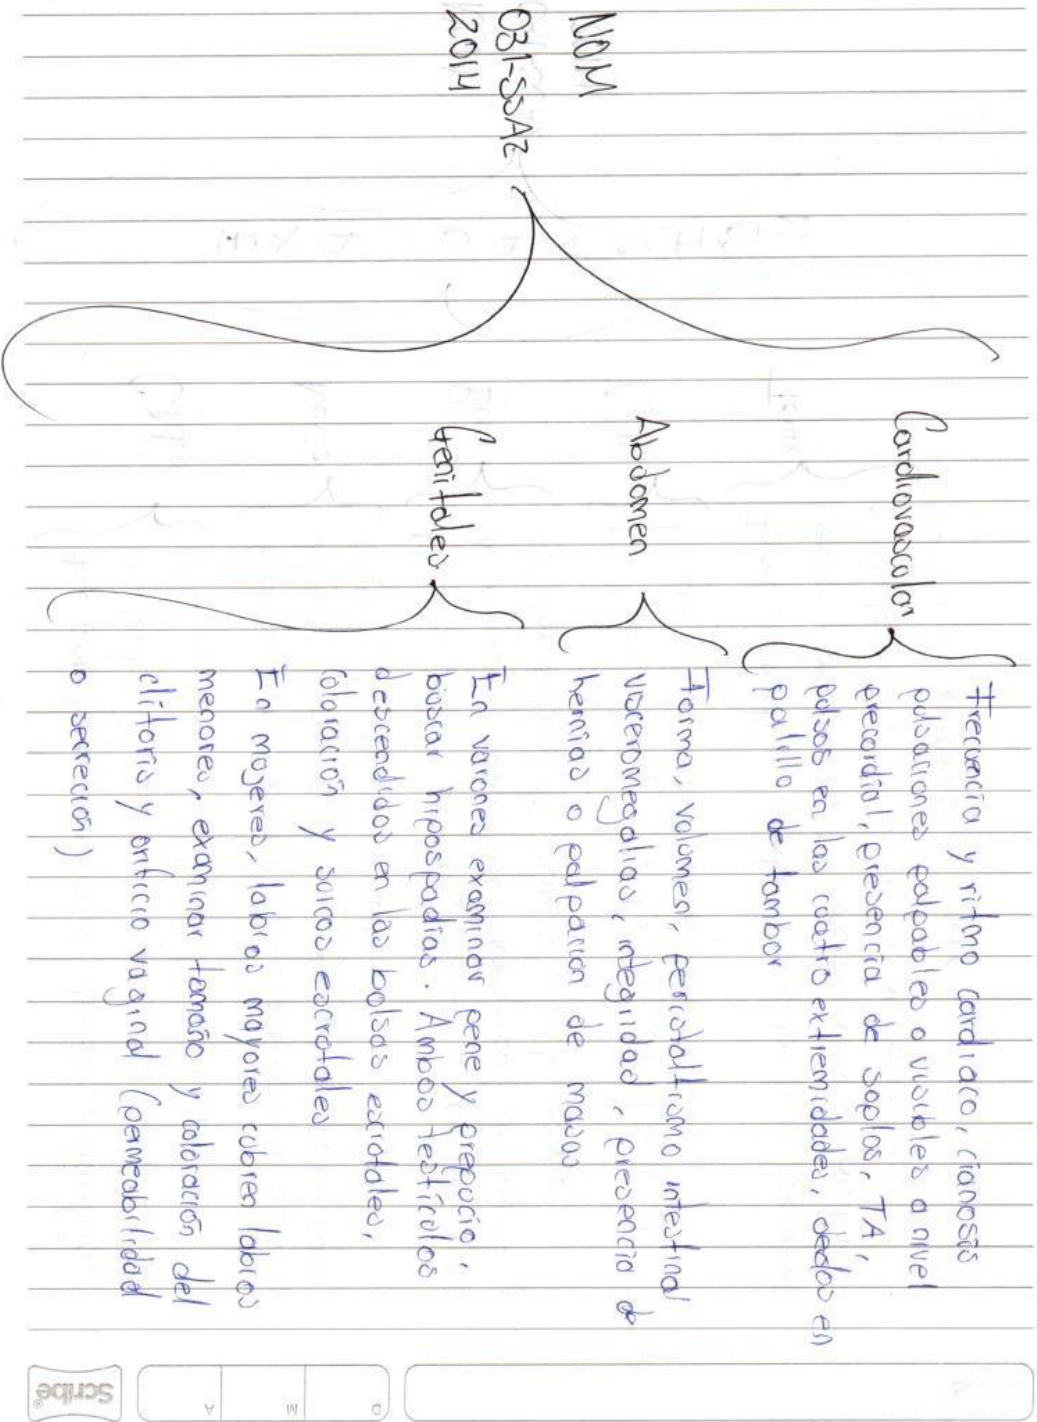 NOM
031-SSA2
2014
Cardiovascular
Frecuencia y ritmo cardiaco, cianosis
pulsaciones palpables o visibles a nivel
precordial, presencia de soplos, TA,
pulsos en las cuatro extremidades, dedos en
palillo de tambor
Abdomen
Forma, volumen, peristaltismo intestinal
visceromegalias, integridad, presencia de
hernias o palpación de masas
Genitales
En varones examinar pene y prepucio,
buscar hipospadias. Ambos testículos
descendidos en las bolsas escrotales,
coloración y surcos escrotales
En mujeres, labios mayores cubren labios
menores, examinar tamaño y coloración del
clítoris y orificio vaginal (permeabilidad
o secreción)
D M A
Scribe